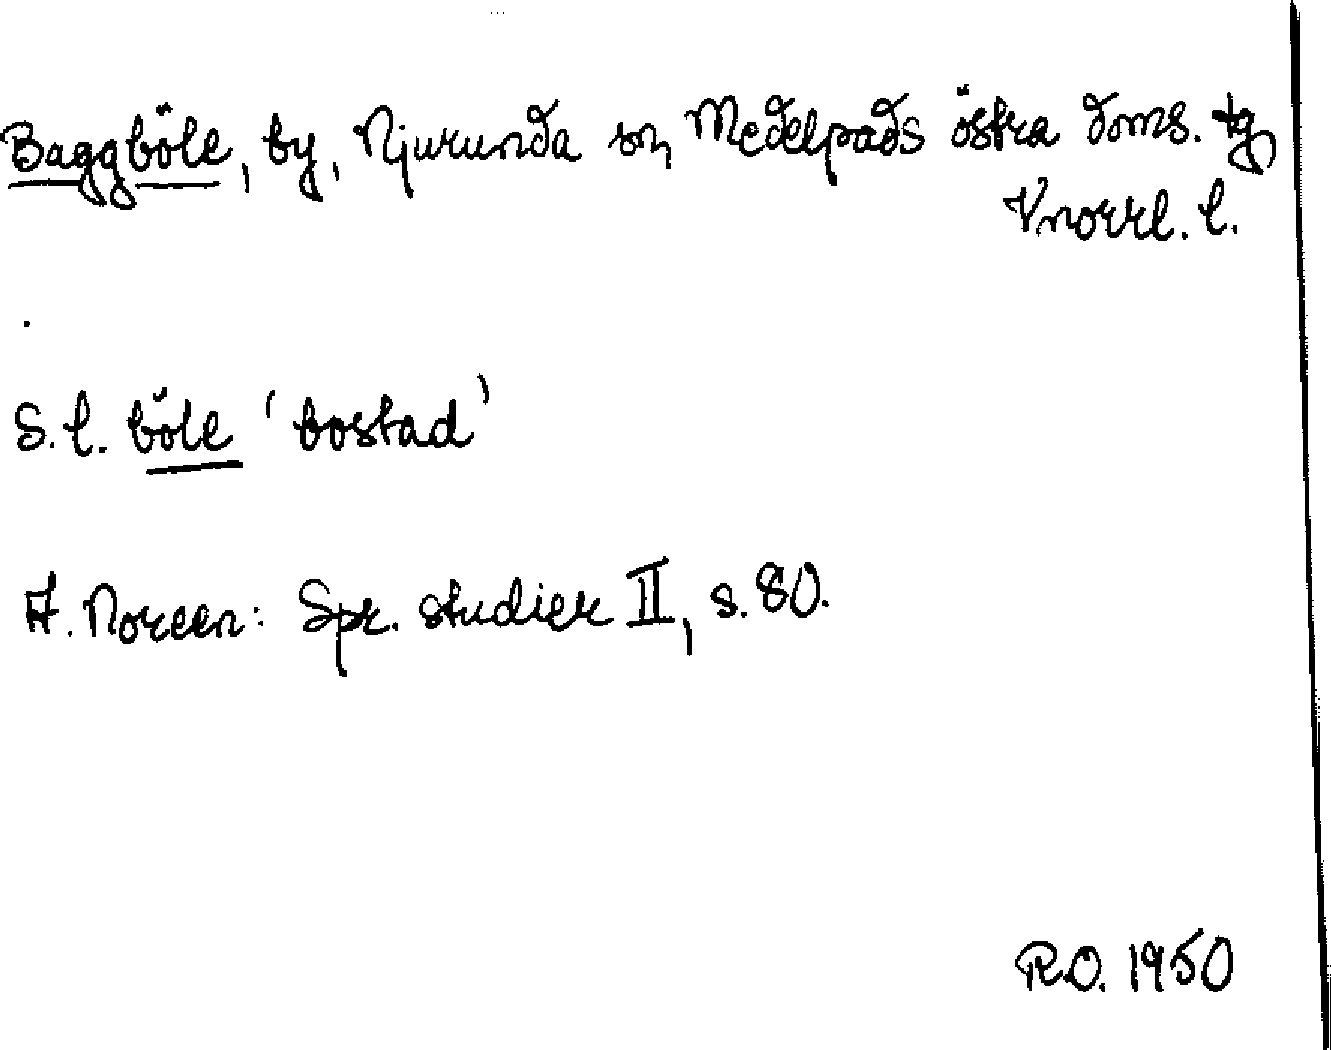 Baggböle, by, Njurunda sn, Medelpads östra doms. tg,
Vnorrl. l.
S. l. böle 'bostad'
A. Noreen: Spr. studier II, s. 80.
R.O. 1950